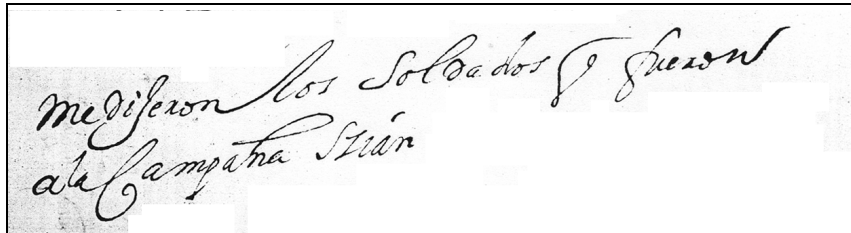 me dijeron los soldados q fueron
a la Campaña Srián